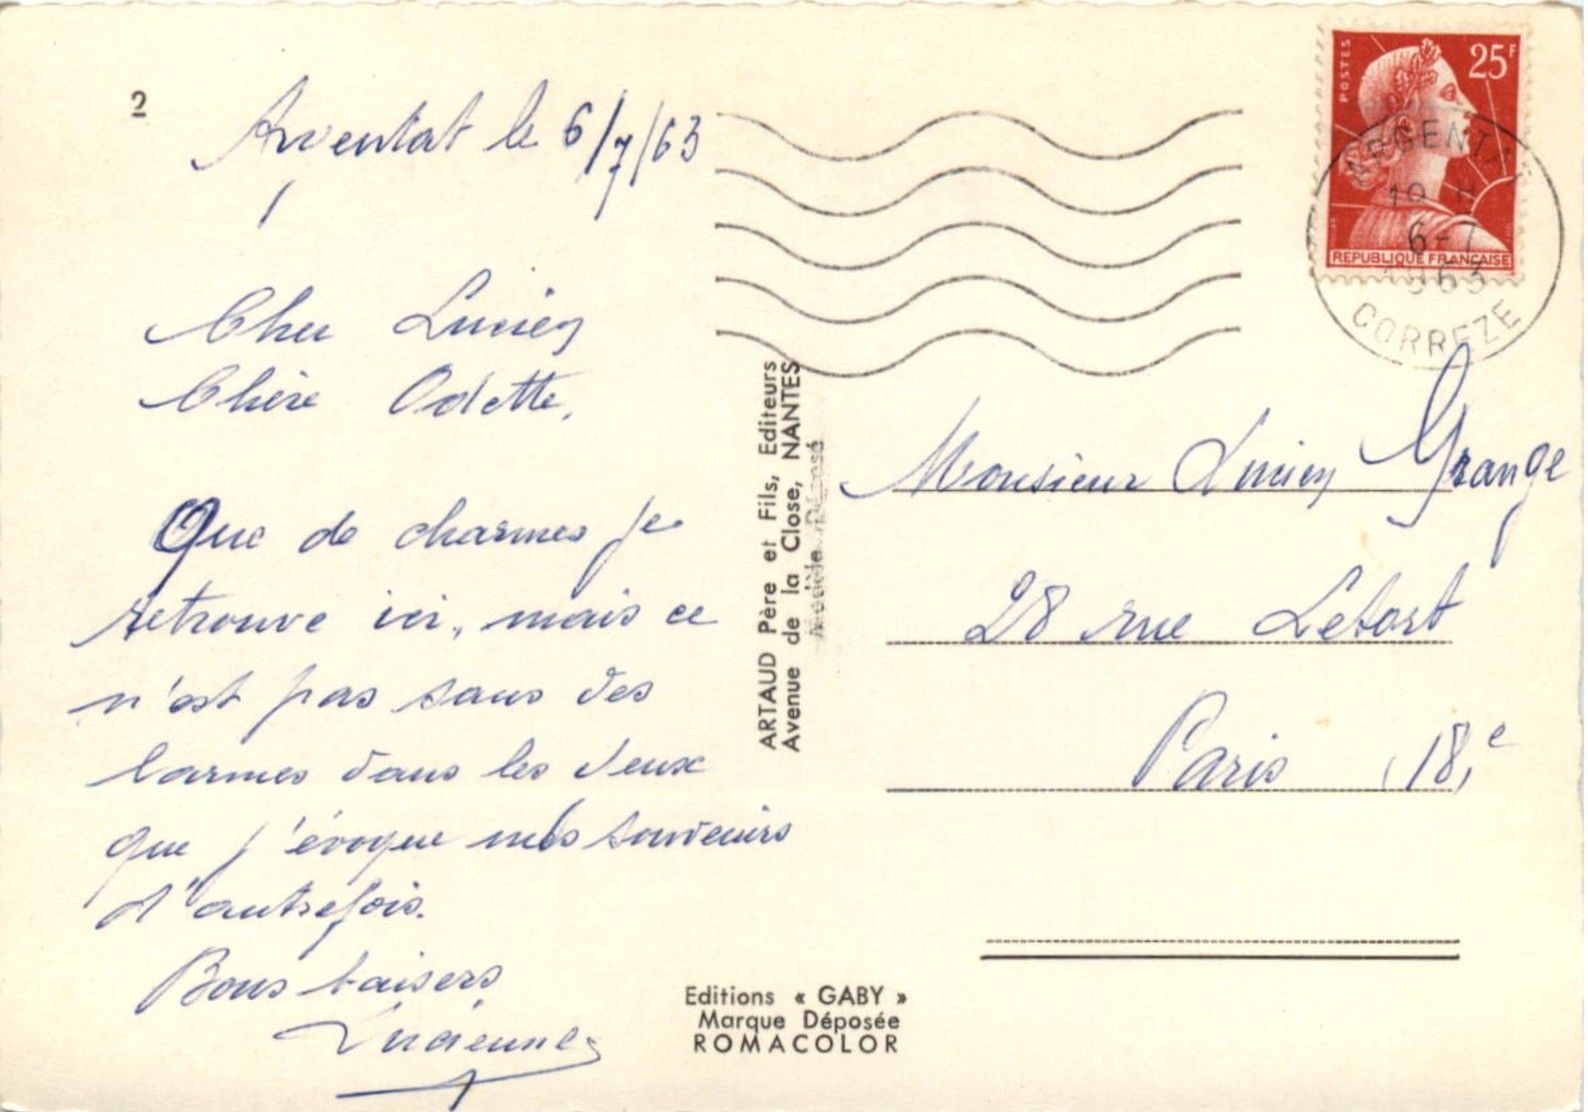 2
Argentat le 6/7/63
Cher Lucien
Chère Odette,
Que de charmes je
retrouve ici, mais ce
n'est pas sans des
larmes dans les yeux
que j'évoque mes souvenirs
d'autrefois.
Bons baisers
Lucienne
ARTAUD Père et Fils, Editeurs
Avenue de la Close, NANTES
Modèle Déposé
Editions « GABY »
Marque Déposée
ROMACOLOR
POSTES
25F
REPUBLIQUE FRANÇAISE
ARGENTAT
6-7
1963
CORREZE
Monsieur Lucien Grange
28 rue Letort
Paris 18e